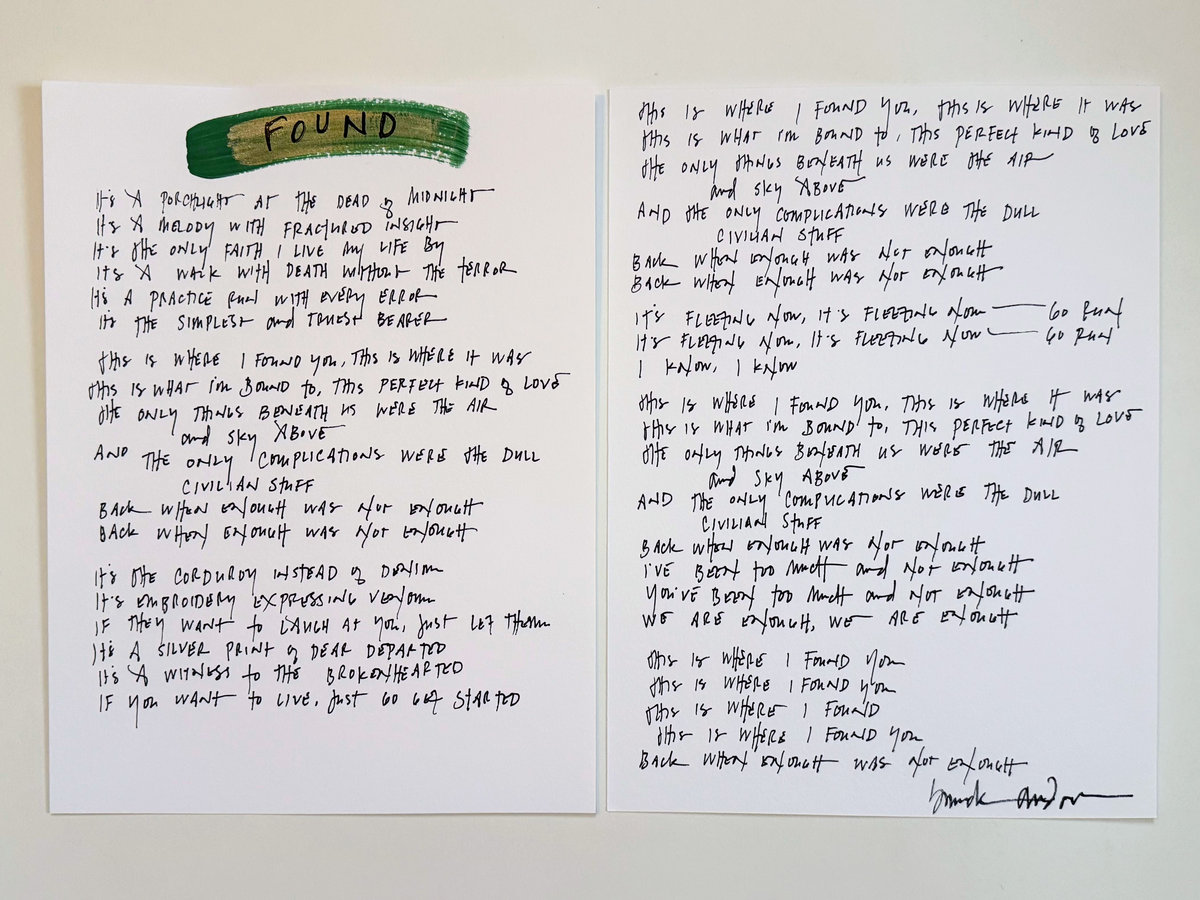 FOUND
IT'S A PORCHLIGHT AT THE DEAD of MIDNIGHT
IT'S A MELODY WITH FRACTURED INSIGHT
IT'S THE ONLY FAITH I LIVE MY LIFE BY
IT'S A WALK WITH DEATH WITHOUT THE TERROR
IT'S A PRACTICE RUN WITH EVERY ERROR
IT'S THE SIMPLEST and TRUEST BEARER
THIS IS WHERE I FOUND YOU, THIS IS WHERE IT WAS
THIS IS WHAT I'M BOUND TO, THIS PERFECT KIND of LOVE
THE ONLY THINGS BENEATH US WERE THE AIR
and SKY ABOVE
AND THE ONLY COMPLICATIONS WERE THE DULL
CIVILIAN STUFF
BACK WHEN ENOUGH WAS NOT ENOUGH
BACK WHEN ENOUGH WAS NOT ENOUGH
IT'S THE CORDUROY INSTEAD of DENIM
IT'S EMBROIDERY EXPRESSING VENOM
IF THEY WANT TO LAUGH AT YOU, JUST LET THEM
IT'S A SILVER PRINT of DEAR DEPARTED
IT'S A WITNESS TO THE BROKENHEARTED
IF YOU WANT TO LIVE, JUST GO GET STARTED
THIS IS WHERE I FOUND YOU, THIS IS WHERE IT WAS
THIS IS WHAT I'M BOUND TO, THIS PERFECT KIND of LOVE
THE ONLY THINGS BENEATH US WERE THE AIR
and SKY ABOVE
AND THE ONLY COMPLICATIONS WERE THE DULL
CIVILIAN STUFF
BACK WHEN ENOUGH WAS NOT ENOUGH
BACK WHEN ENOUGH WAS NOT ENOUGH
IT'S FLEETING NOW, IT'S FLEETING NOW — GO RUN
IT'S FLEETING NOW, IT'S FLEETING NOW — GO RUN
I KNOW, I KNOW
THIS IS WHERE I FOUND YOU, THIS IS WHERE IT WAS
THIS IS WHAT I'M BOUND TO, THIS PERFECT KIND of LOVE
THE ONLY THINGS BENEATH US WERE THE AIR
and SKY ABOVE
AND THE ONLY COMPLICATIONS WERE THE DULL
CIVILIAN STUFF
BACK WHEN ENOUGH WAS NOT ENOUGH
I'VE BEEN TOO MUCH and NOT ENOUGH
YOU'VE BEEN TOO MUCH and NOT ENOUGH
WE ARE ENOUGH, WE ARE ENOUGH
THIS IS WHERE I FOUND YOU
THIS IS WHERE I FOUND YOU
THIS IS WHERE I FOUND
THIS IS WHERE I FOUND YOU
BACK WHEN ENOUGH WAS NOT ENOUGH